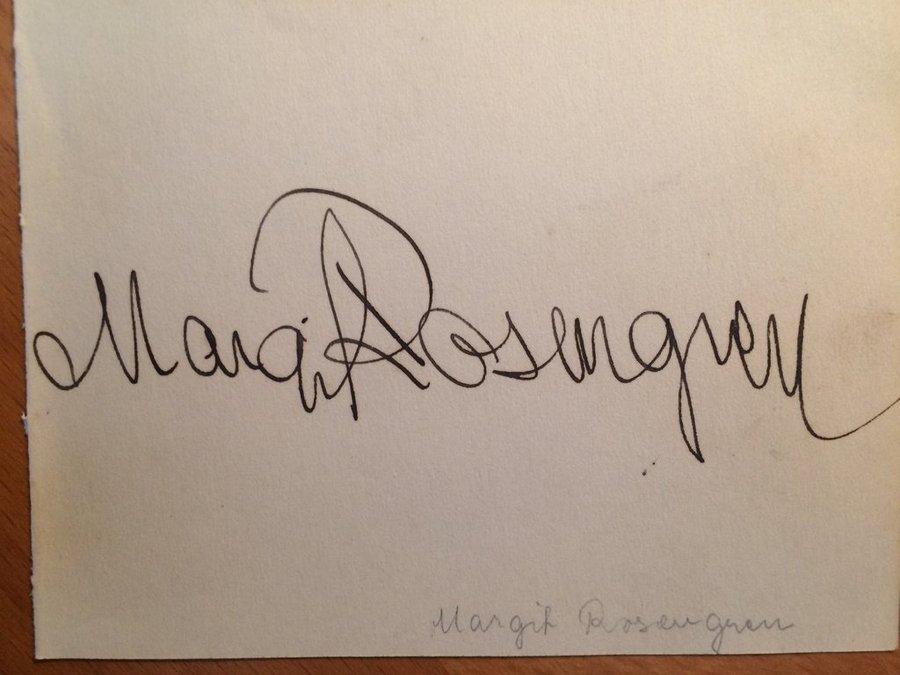 Margit Rosengren
Margit Rosengren